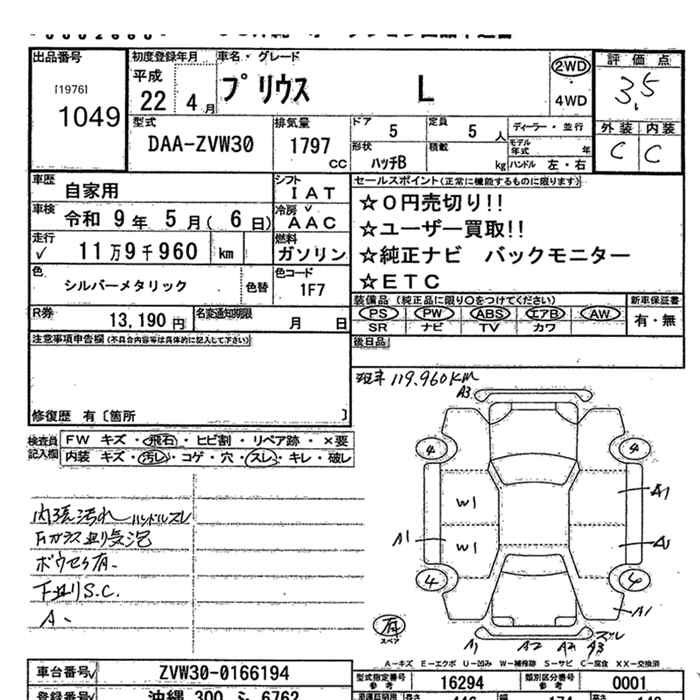 出品番号
[1976]
1049
初度登録年月
平成
22 4月
車名・グレード
プリウス L
2WD
・
4WD
評価点
3.5
外装 内装
C C
型式
DAA-ZVW30
排気量
1797
CC
ドア
5
定員
5 人
形状
ハッチB
積載
kg
ディーラー・並行
モデル年式 年
ハンドル 左・右
車歴
自家用
シフト
IAT
車検
令和 9年 5月( 6日)
冷房
AAC
走行
11万9千960 km
燃料
ガソリン
色
シルバーメタリック
色替
色コード
1F7
R券
13,190円
名変通知期限
月 日
セールスポイント(正常に機能するものに限ります)
☆0円売切り!!
☆ユーザー買取!!
☆純正ナビ バックモニター
☆ETC
装備品(純正品に限り○をつけてください)
PS PW ABS エアB AW
SR ナビ TV カワ
新車保証書
有・無
後日品
注意事項申告欄(不具合内容等は具体的に記入して下さい)
修復歴 有〔箇所 〕
検査員記入欄
FW キズ・飛石・ヒビ割・リペア跡・×要
内装 キズ・汚レ・コゲ・穴・スレ・キレ・破レ
現車 119.960KM
A3
4 4
W1
W1
A1
A1
4 4
A1
A1 A2 A2 A3
有
スペア
内張汚れ ハンドルスレ
Fガラス
下廻りS.C.
A-キズ E-エクボ U-凹み W-補修跡 S-サビ C-腐食 XX-交換済
車台番号
ZVW30-0166194
型式指定番号
16294
類別区分番号
0001
登録番号
沖縄 300
6762